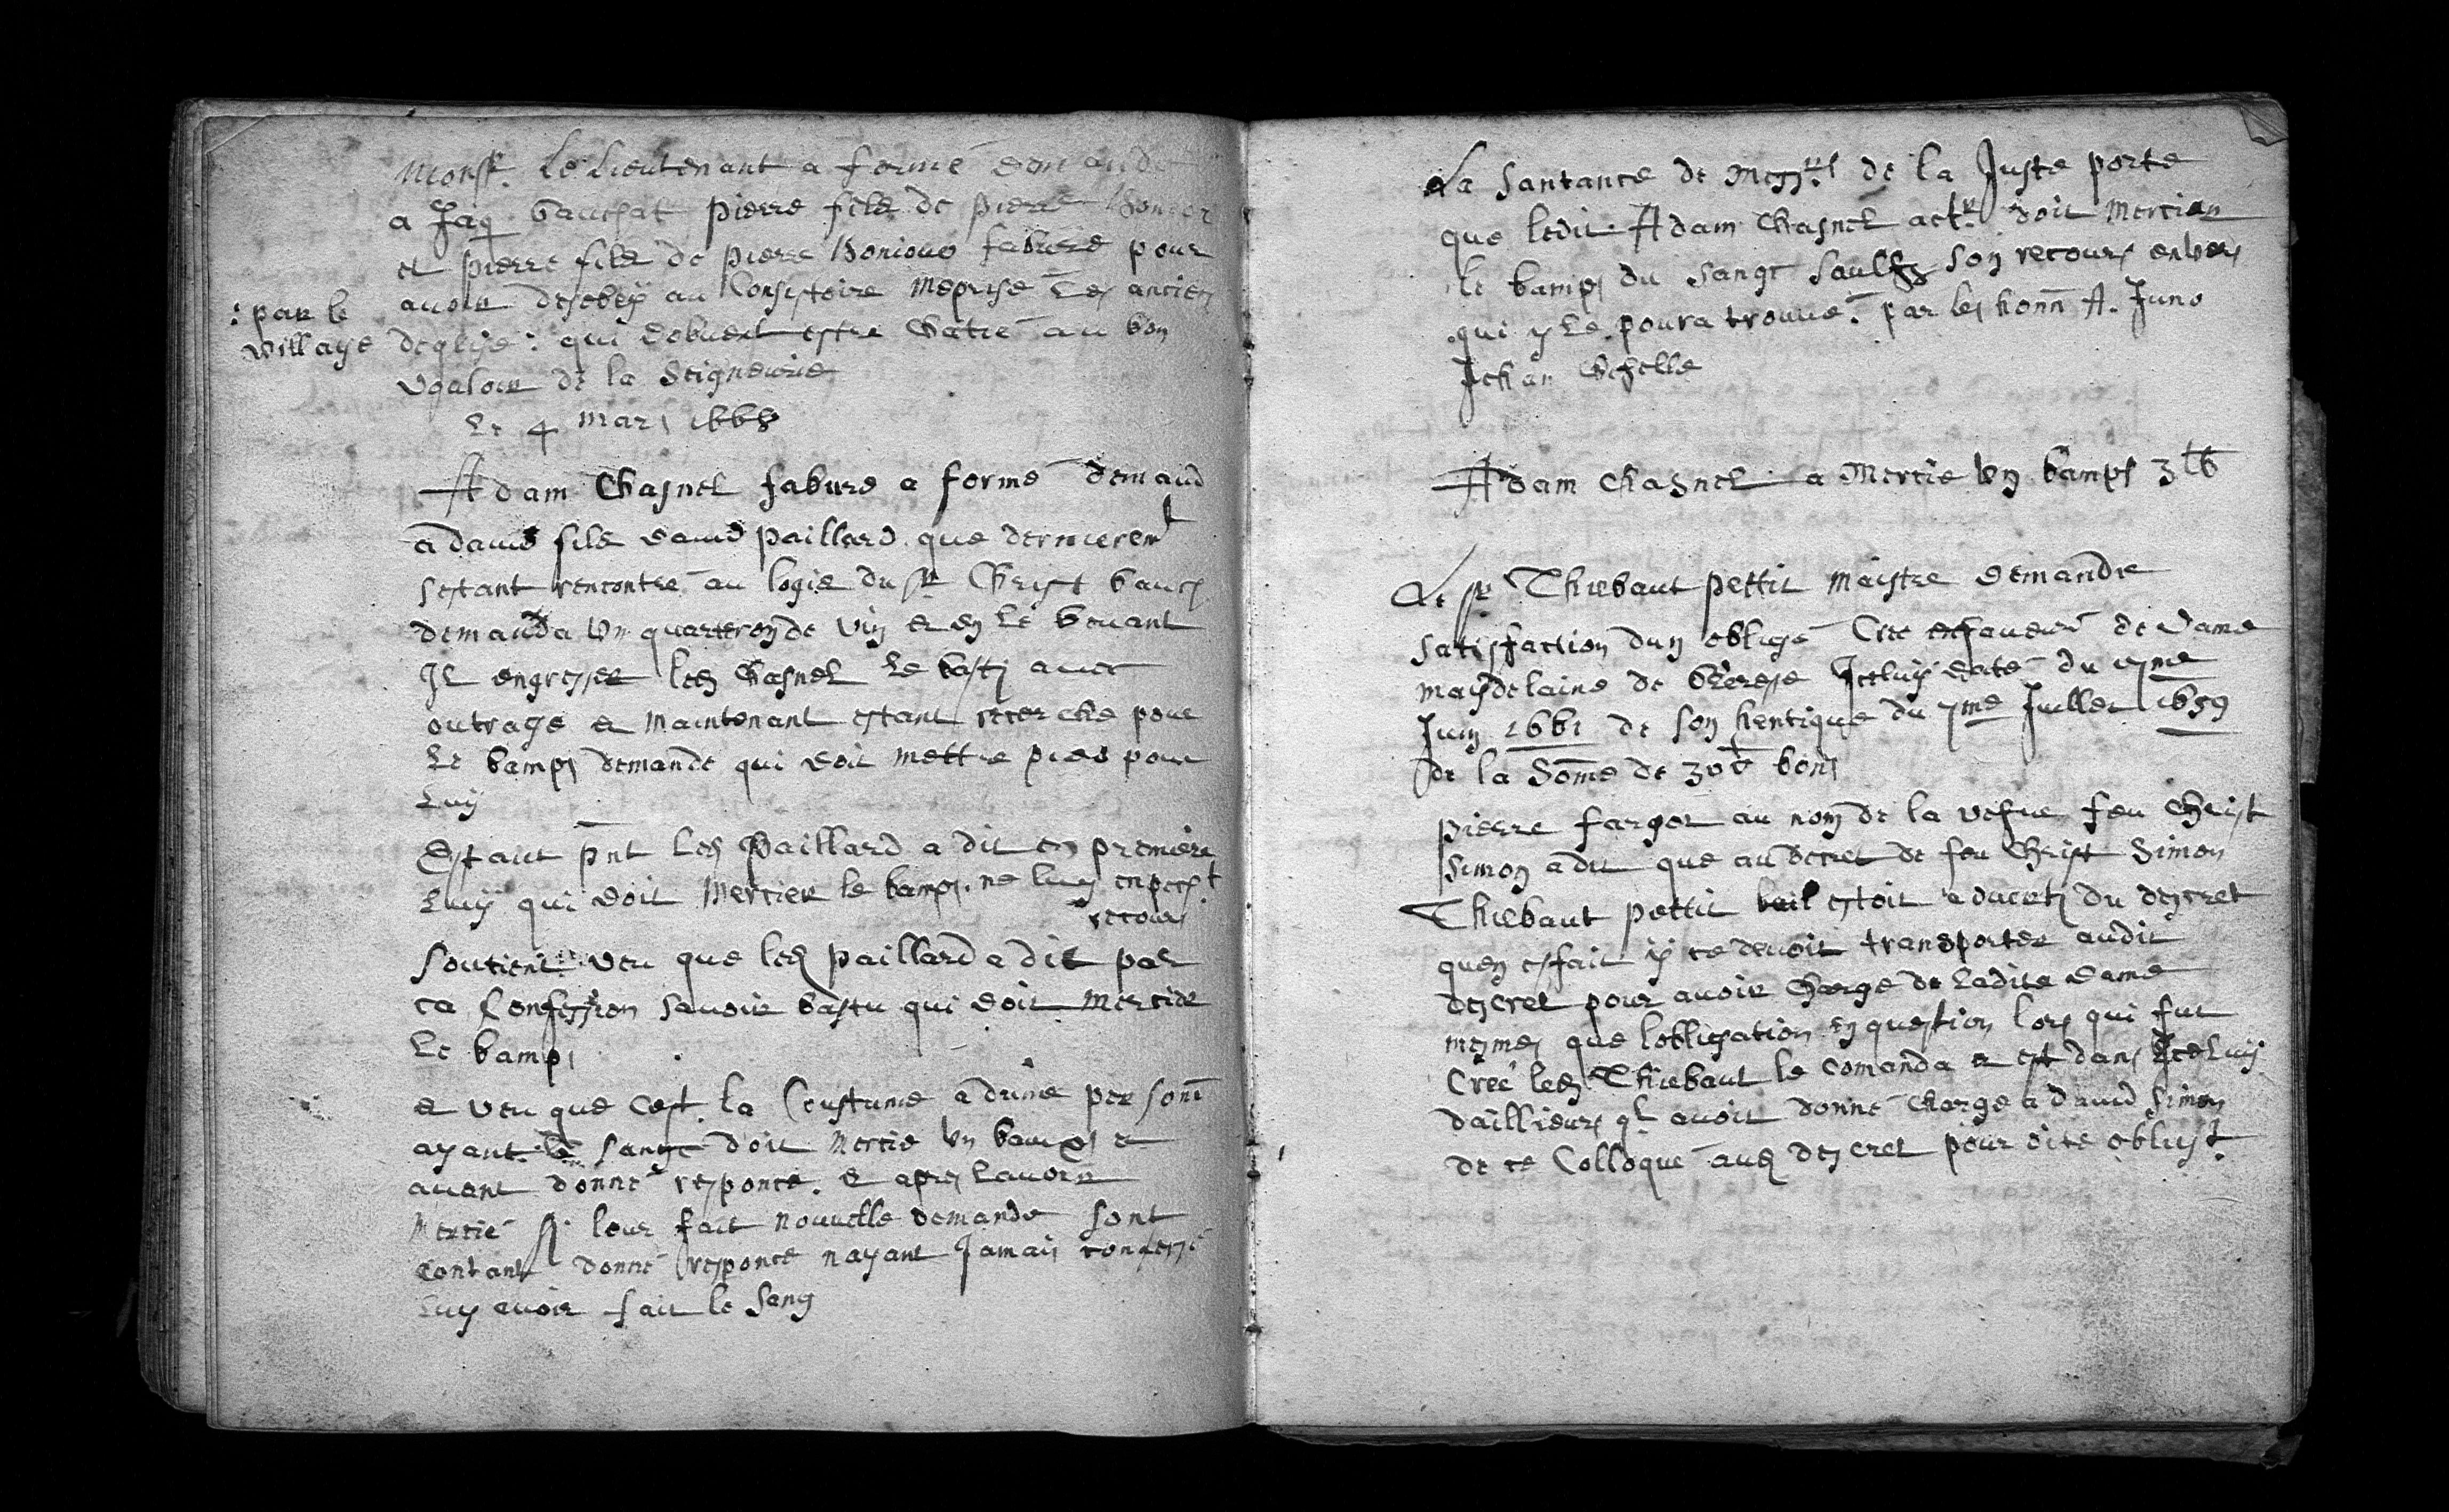 Monsr. Le Lieutenant a formé demande
a Jaq bauchat pierre filz de pierre
et pierre filz de pierre Boniour faburs pour
auoir desobey au Consistoire meprise Les ancien
: par le village
deglise : qui doibuent estre Chatié au bon
Voaloir de la Seigneurie
Le 4 Mars 1668
Adam Chasnel faburs a formé demand
a dauid filz dauid paillard que dernierent
sestant rencontré au logis du sr Christ bauch
demanda vn quarteron de vin et en le beuant
Il engresse led Chasnel Le basty auec
outrage et maintenant estant recerche pour
Le bamps demande qui doit mettre pied pour
Luy
Estant pnt Led Paillard a dit en premiere
Luy qui doit Mercier le bamps. ne luy
recours
soutient veu que led paillard a dit par
ca Confession sauoir bastu qui doit mercier
Le bamps
et veu que cest la Coustume a dune personne
ayant le sangt doit mercie vn bamps et
auant donné responce. et apres lauoir
Mercié sy leur fait nouuelle demande sont
contant donné responce nayant Jamais confessé
Luy auoir fait le Sang
La Santance de Messrs de la Juste porte
que ledit Adam Chasnel actr doit Mercier
le bamps du Sangt saulfz son recours enuers
qui y Le poura trouué par les honn A. Juno
Jehan
Adam Chasnel a Mercie vn bamps 3 lb
Le sr Thiebaut pettit maistre demande
satisfaction dun obligé Cree enfaueur de Dame
magdelaine de Iceluy daté du yme
Juin 1661 de son hentique du 7me Juillet 1659
de la Some de 30 bons
pierre fargot au nom de la vefue feu Christ
Simon a dit que au decret de feu Christ Simon
Thiebaut pettit estoit aduerty du descret
quen esfait y ce deuoit transporter audit
descret pour auoir Charge de Ladite dame
mesmes que lobligation en question lors qui fut
Creé led Thiebaut le comanda et est dans Iceluy
dailliers ql auoit donné charge a Dauid Simon
de ce Colloqué aud descret pour dite obligt.